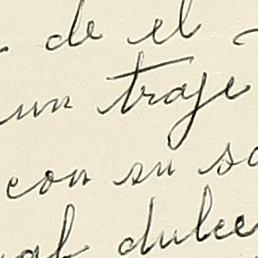 de el
un traje
con su
dulce